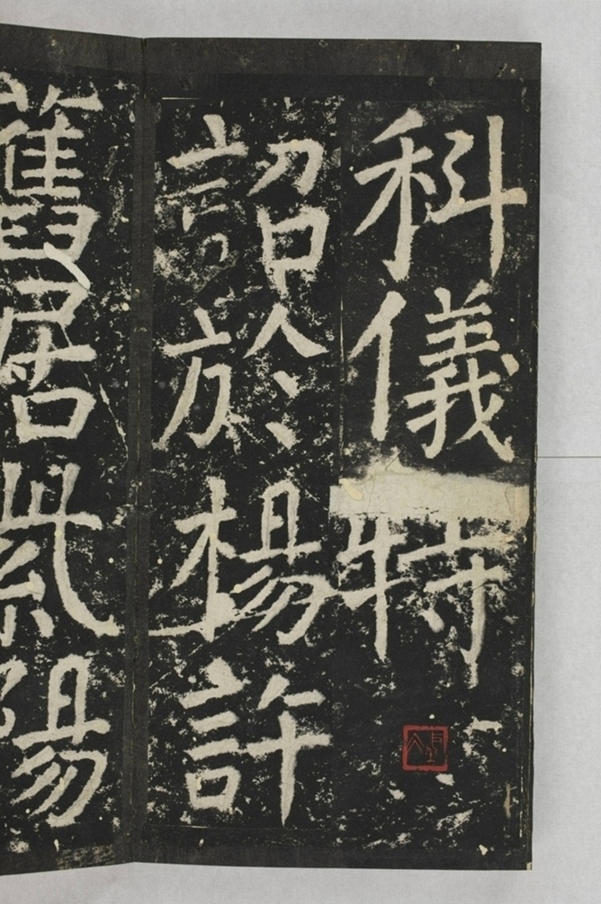 科儀特
詔於楊許
舊居紫陽